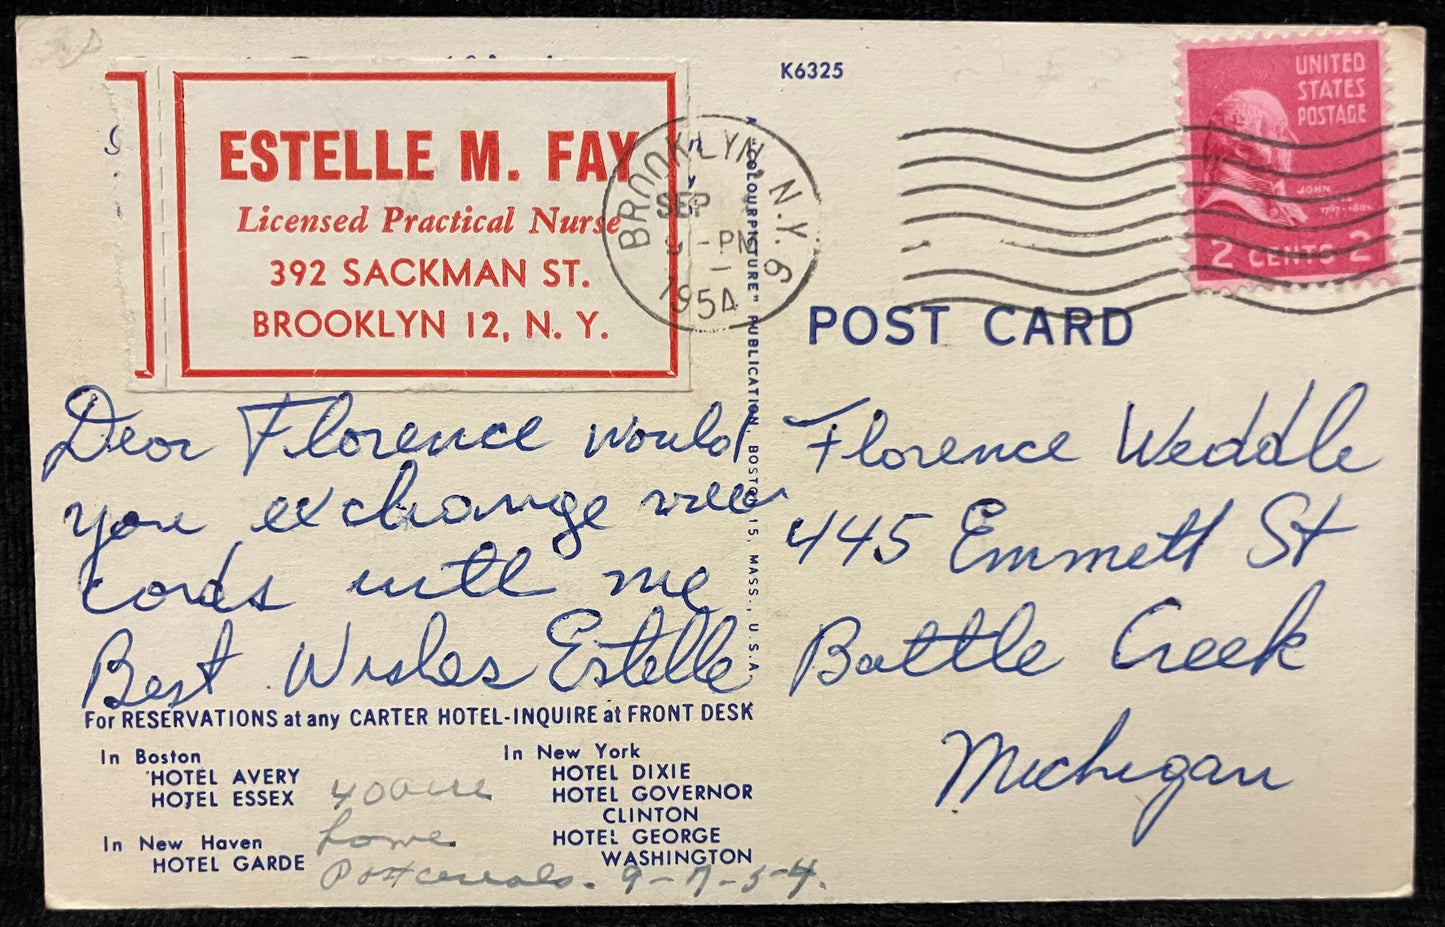 K6325
ESTELLE M. FAY
Licensed Practical Nurse
392 SACKMAN ST.
BROOKLYN 12, N. Y.
BROOKLYN, N.Y. 9
SEP
- PM
1954
UNITED
STATES
POSTAGE
JOHN
2 CENTS 2
A "COLOURPICTURE" PUBLICATION, BOSTON 15, MASS., U.S.A.
POST CARD
Dear Florence would
you exchange view
cards with me
Best Wishes Estelle
Florence Weddle
445 Emmett St
Battle Creek
Michigan
For RESERVATIONS at any CARTER HOTEL-INQUIRE at FRONT DESK
In Boston
HOTEL AVERY
HOTEL ESSEX
In New Haven
HOTEL GARDE
In New York
HOTEL DIXIE
HOTEL GOVERNOR
CLINTON
HOTEL GEORGE
WASHINGTON
9-7-54.